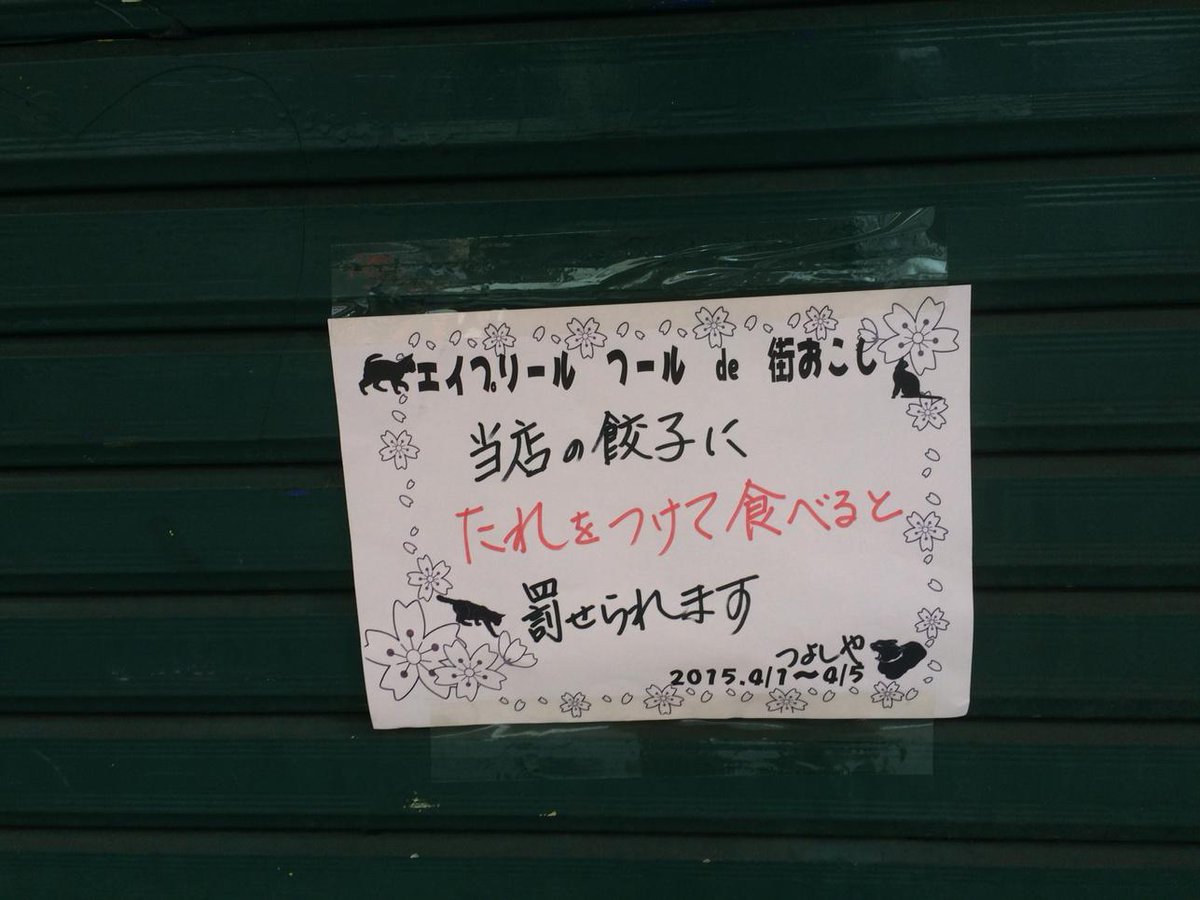 エイプリール フール de 街おこし
当店の餃子に
たれをつけて食べると
罰せられます
つよしや
2015.4/1〜4/5